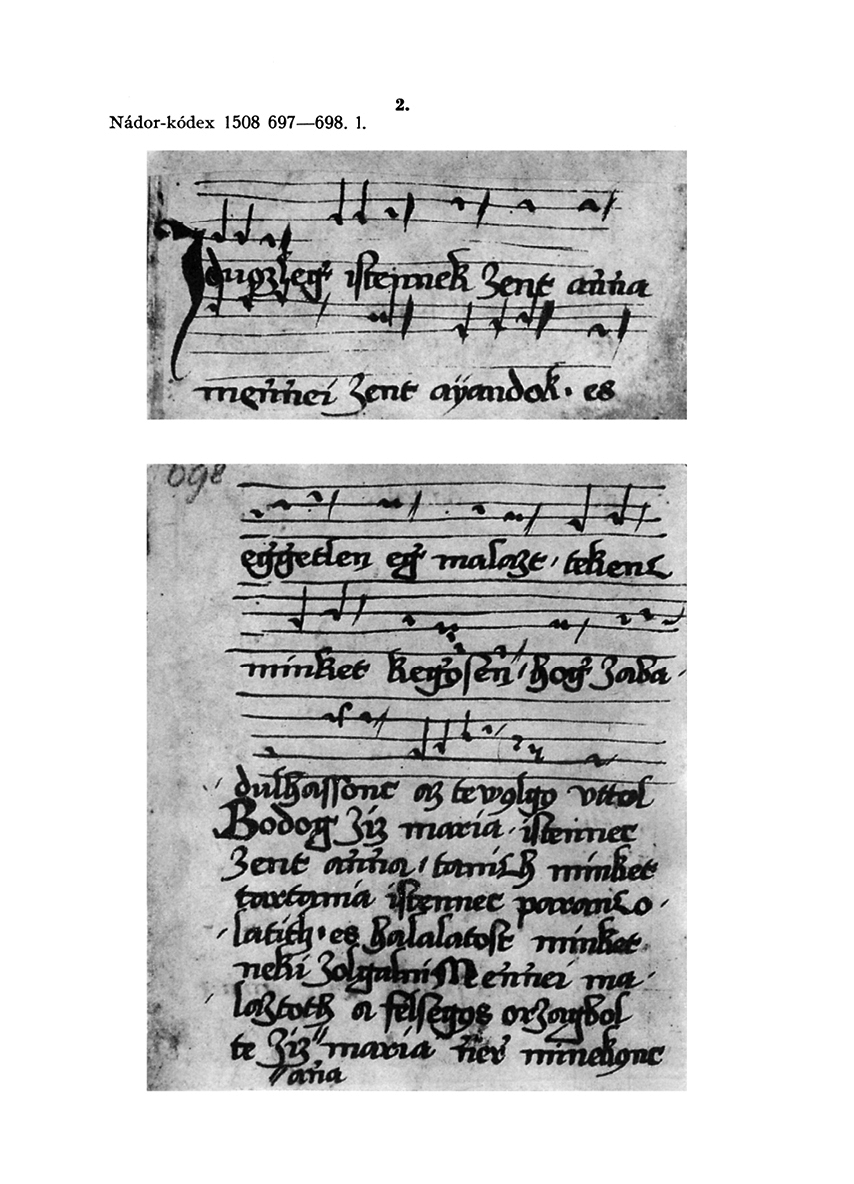 2.
Nádor-kódex 1508 697—698. l.
Jduꝫleǵ iſteṅnek Zent ańńa
meńńei Zent aÿandok · es
698
eǵǵetlen eǵ malaꝫt / tekencz
minket keǵoſen / hoǵ Zaba /
dulhaſſonc aꝫ te vylgy vttol
Bodog Ziz maria · iſtennec
Zent ańńa / tanicz minket
tartania iſtennec paranczo /
/ latith · es halalatoſt minket
neki Zolgalni Meńńei ma /
laꝫtoth a felſegos orZagbol
te Ziz " maria ńer minekonc
" ańa